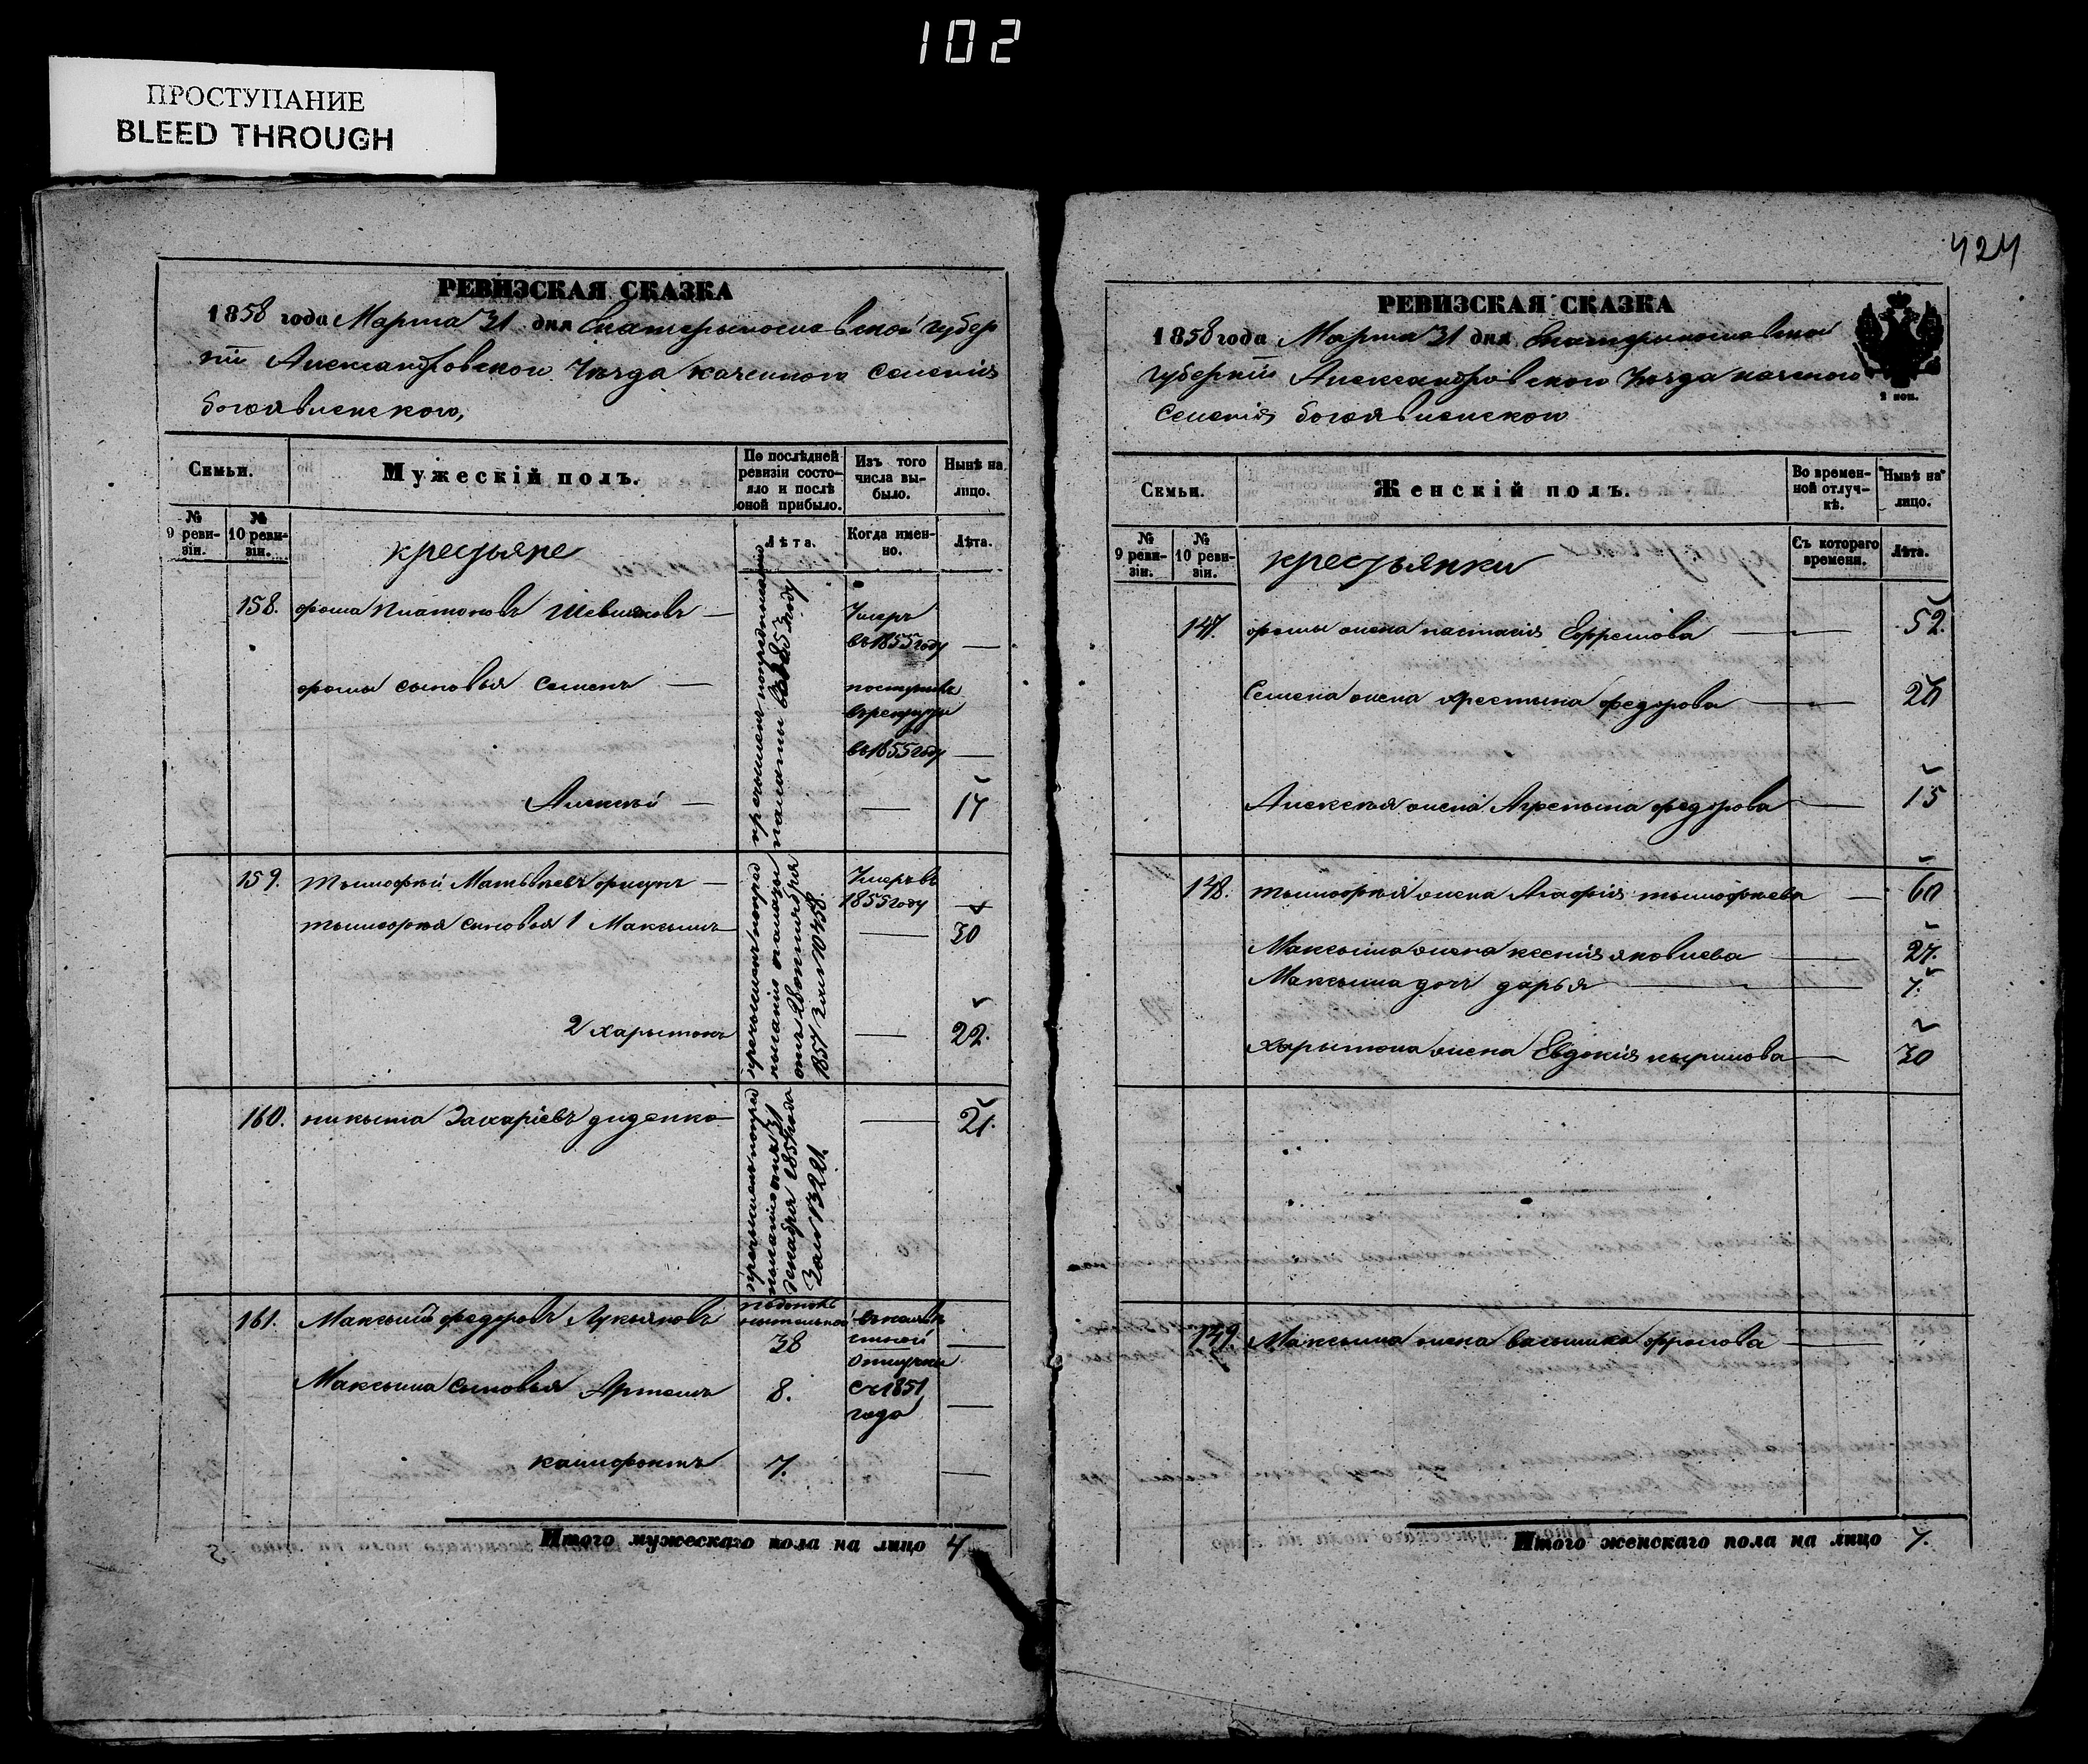 102
ПРОСТУПАНИЕ
BLEED THROUGH
424
РЕВИЗСКАЯ СКАЗКА
1858 года Марта 31 дня Екатерынославской губер
нии Александровского Уезда казенного селения
богоявленского,
Семьи.
Мужескій полъ.
По послѣдней ревизіи состояло и послѣ оной прибыло.
Изъ того числа выбыло.
Нынѣ на лицо.
№ 9 ревизіи.
№ 10 ревизіи.
крестьяне
Лѣта.
Когда именно.
Лѣта.
158. фома Платоновъ Шевляковъ —
Умеръ
въ 1855 году —
фомы сыновья Семенъ —
поступилъ
въ рекруты
въ 1855 году —
Алексѣй — — 17
159. тымофѣй Матвѣевъ —
Умеръ въ
1855 году
тымофѣя сыновья 1 Максымъ — 30
2 харытонъ — 22.
1857 за № 10458.
160. никыта Захаріевъ диденко — 21.
декабря 1857 года
за № 13221.
161. Максымъ федоровъ Лукьяновъ
38
отлучки —
Максыма сыновья Артемъ 8.
съ 1851
года —
7. —
Итого мужескаго пола на лицо 4
РЕВИЗСКАЯ СКАЗКА
1858 года Марта 31 дня Екатерынославской
губернии Александровского Уезда казенного
Селения богоявленского
2 пол.
Семьи.
Женскій полъ.
Во временной отлучкѣ.
Нынѣ на лицо.
№ 9 ревизіи.
№ 10 ревизіи.
крестьянки
Съ котораго времени.
Лѣта.
147. фомы жена настасия Ефремова — 52.
Семена жена хрестына федорова —
Алексѣя жена Агрепына федорова — 15
148. тымофѣя жена Агафия тымофѣева — 60
Максыма жена ксения яковлева — 27.
Максыма дочь дарья — 7.
харытона жена Евдокия кырилова — 30
149. Максыма жена фролова —
Итого женскаго пола на лицо 7.